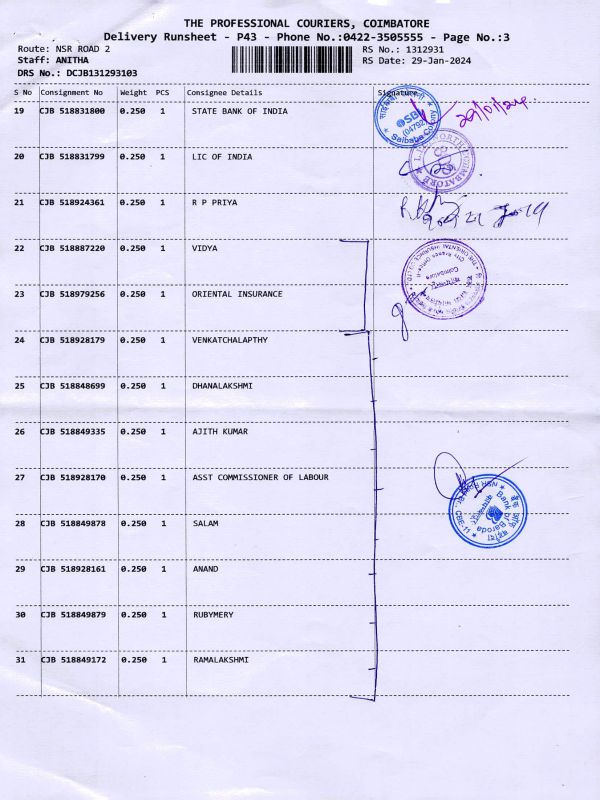 THE PROFESSIONAL COURIERS, COIMBATORE
Delivery Runsheet - P43 - Phone No.:0422-3505555 - Page No.:3
Route: NSR ROAD 2 RS No.: 1312931
Staff: ANITHA RS Date: 29-Jan-2024
DRS No.: DCJB131293103
S No Consignment No Weight PCS Consignee Details Signature
19 CJB 518831800 0.250 1 STATE BANK OF INDIA
SBI
(04792)
29/01/24
20 CJB 518831799 0.250 1 LIC OF INDIA
21 CJB 518924361 0.250 1 R P PRIYA
22 CJB 518887220 0.250 1 VIDYA
23 CJB 518979256 0.250 1 ORIENTAL INSURANCE
24 CJB 518928179 0.250 1 VENKATCHALAPTHY
25 CJB 518848699 0.250 1 DHANALAKSHMI
26 CJB 518849335 0.250 1 AJITH KUMAR
27 CJB 518928170 0.250 1 ASST COMMISSIONER OF LABOUR
28 CJB 518849878 0.250 1 SALAM
Bank of Baroda
CBE-11
29 CJB 518928161 0.250 1 ANAND
30 CJB 518849879 0.250 1 RUBYMERY
31 CJB 518849172 0.250 1 RAMALAKSHMI